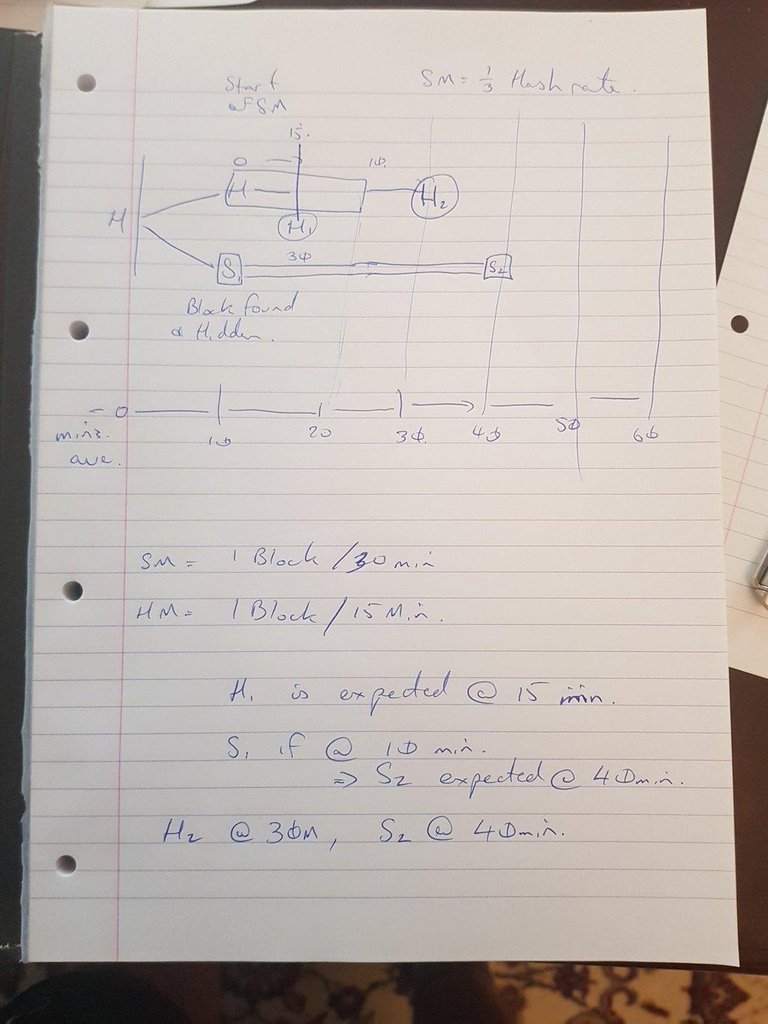 Start
of SM
SM = 1/3 Hash rate.
15.
0
1Φ.
H
H
H2
H1
3Φ
S1
S2
Block found
& Hidden.
0
mins.
ave.
1Φ
20
3Φ.
4Φ
5Φ
6Φ
SM = 1 Block / 30 min
HM = 1 Block / 15 Min.
H1 is expected @ 15 min.
S1 if @ 1Φ min.
=> S2 expected @ 4Φ min.
H2 @ 3Φ M, S2 @ 4Φ min.